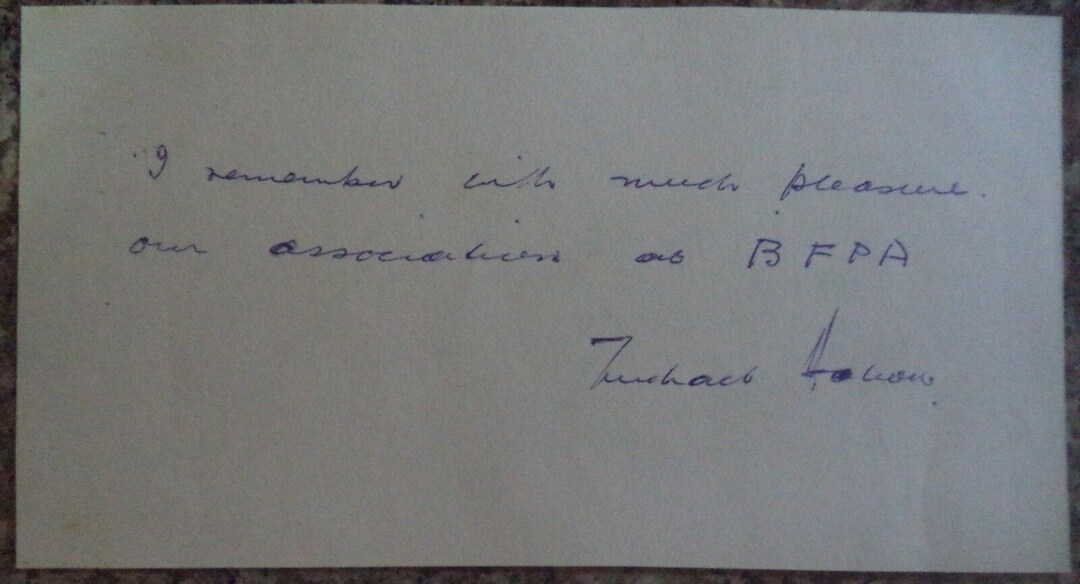 I remember with much pleasure.
our association at BFPA
Michael